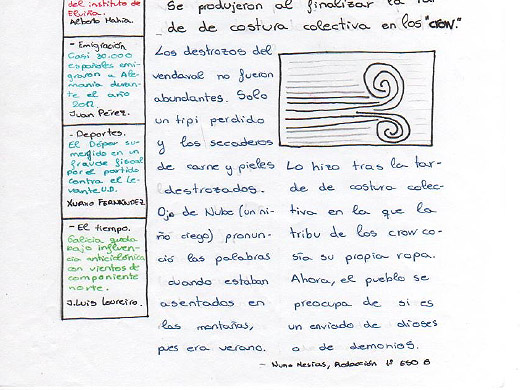 del instituto de
Elviña.
Alberto Mahía.
- Emigración
Casi 30.000
españoles emi-
graron a Ale-
mania duran-
te el año
2012
Juan Pérez.
- Deportes.
El Dépor su-
mergido en un
fraude fiscal
por el partido
contra el Le-
vante U.D.
Xurxo FERNÁNDEZ
- El tiempo.
Galicia queda
bajo influen-
cia anticiclónica
con vientos de
componiente
norte.
J. Luis Loureiro.
Se produjeron al finalizar la tar-
de de costura colectiva en los "crow."
Los destrozos del
vendaval no fueron
abundantes. Solo
un tipi perdido
y los secaderos
de carne y pieles
destrozados.
Ojo de Nube (un ni-
ño ciego) pronun-
ció las palabras
cuando estaban
asentados en
las montañas,
pues era verano.
Lo hizo tras la tar-
de de costura colec-
tiva en la que la
tribu de los crow co-
sía su propia ropa.
Ahora, el pueblo se
preocupa de si es
un enviado de dioses
o de demonios.
- Nuno Mesías, Redacción 1º ESO B